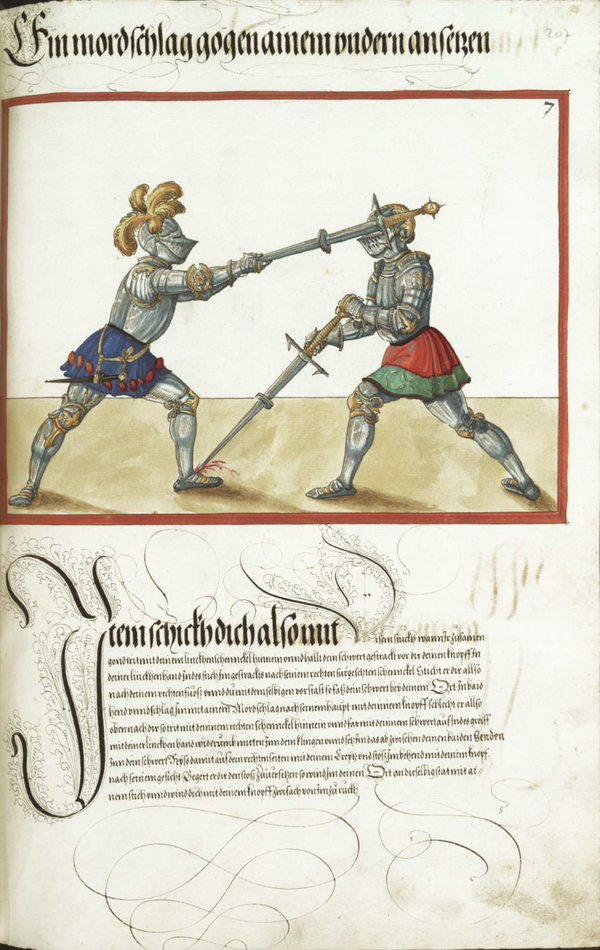 Ein mordschlag gogen ainem undern ansetzen
207
7
Item schickh dich also mit disem stuckh wann Ir zusamen
gond trit mit deinem linckhen schenckel hinein unnd halt dein schwert gestrack vor dir deinen knopff In
deiner linckhen hand Indes stich Im gestracks nach seinem rechten fürgesetzten schennckel Sticht er dir allso
nach deinem rechten fuoß unnd du mit dem selbigen vor stast so faß dein schwert bey deinem Ort In baid
hend unnd schlag Im mit ainem Mordschlag nach seinem haupt mit deinem knopff schlecht er allso
oben nach dir so trit mit deinem rechten schennckel hinein unnd far mit deinem schwert auf Indes greiff
mit deiner linckhen hand widerumb mitten Inn dein klingen unnd setz Im das ab zwischen deinen baiden Henden
Inn dein schwert auf sein rechten seiten mit deinem Creytz unnd stoß Im behend mit deinem knopf
nach seinem gesicht Begert er dir den stoß zuversetzen so wind Im deinen Ort an die selbig stat mit ai-
nem stich unnd wind dich mit deinem knopff zwifach von Im zu ruckh